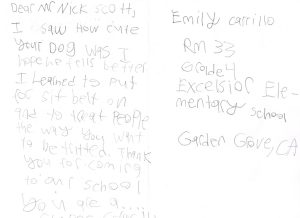 Dear Mr Nick Scott,
I saw how cute
your Dog was I
hope he fells better.
I learned to put
for sit belt on
and to treat People
the way you want
to be tritted. Thank
you for coming
to our school
you are a....
Emily carrillo
Rm 33
Grade 4
Excelsior Ele-
mentary school
Garden Grove, CA